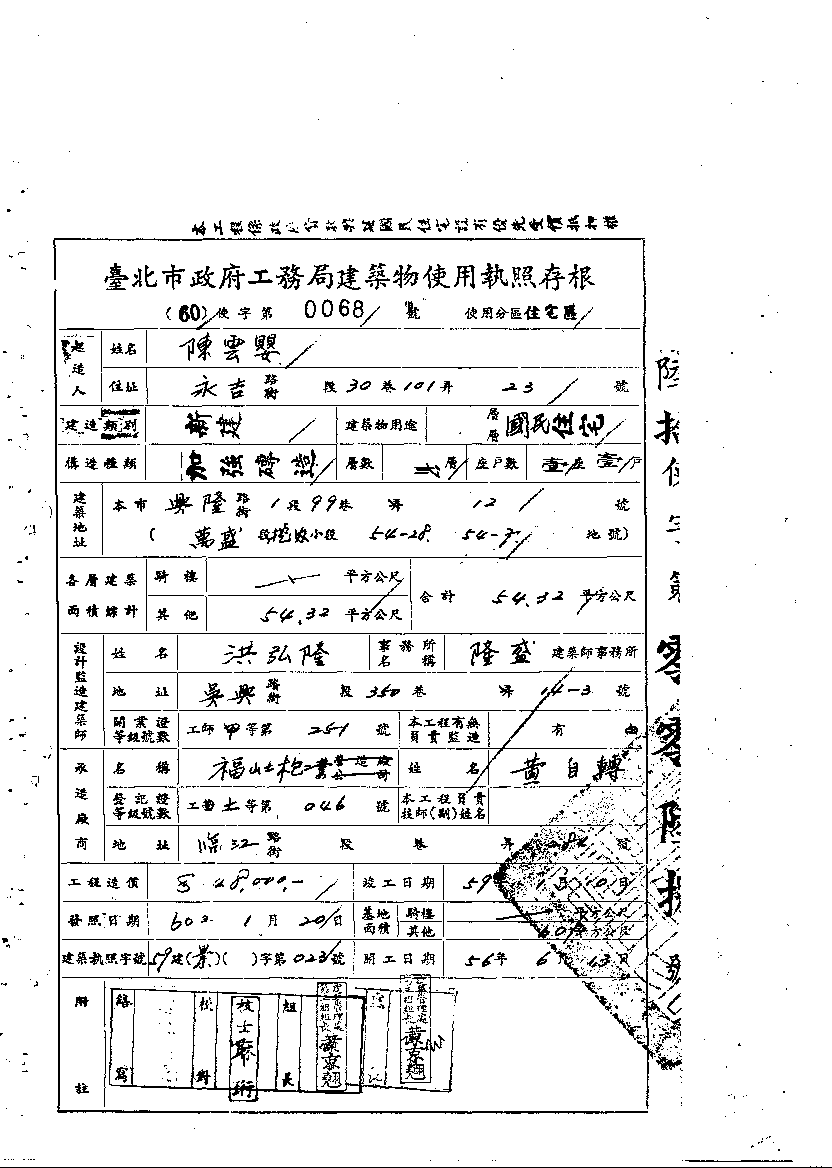 臺北市政府工務局建築物使用執照存根
(60)使字第 0068 號 使用分區住宅區
起造人 姓名 陳雲嬰
住址 永吉 路街 段30巷101弄 23 號
建造類別 新建 建築物用途 層層 國民住宅
構造種類 加強磚造 層數 層 座戶數 壹座 壹戶
建築地址 本市 興隆 路街 1段99巷 弄 12 號
( 萬盛 段 小段 54-28 54-7 地號)
各層建築面積綜計 騎樓 平方公尺 合計 54.32 平方公尺
其他 54.32 平方公尺
設計監造建築師 姓名 洪弘隆 事務所名稱 隆盛 建築師事務所
地址 吳興 路街 段350巷 弄 14-3 號
開業證等級號數 工師 甲等第 251 號 本工程有無負責監造 有 由
承造廠商 名稱 福山土 姓名 黃自轉
登記證等級號數 土等第 046 號 本工程負責技師(期)姓名
地址 臨江 路街 段 巷 弄 號
工程造價 48,000.- 竣工日期 59 月10日
發照日期 60 1月20日 基地面積 騎樓 平方公尺
其他 平方公尺
建築執照字號 59建( )( )字第023號 開工日期 56年 6 13日
附註 繕寫 校對 技士 組長 黃京翹 黃京翹
陸拾使字第零零陸捌號